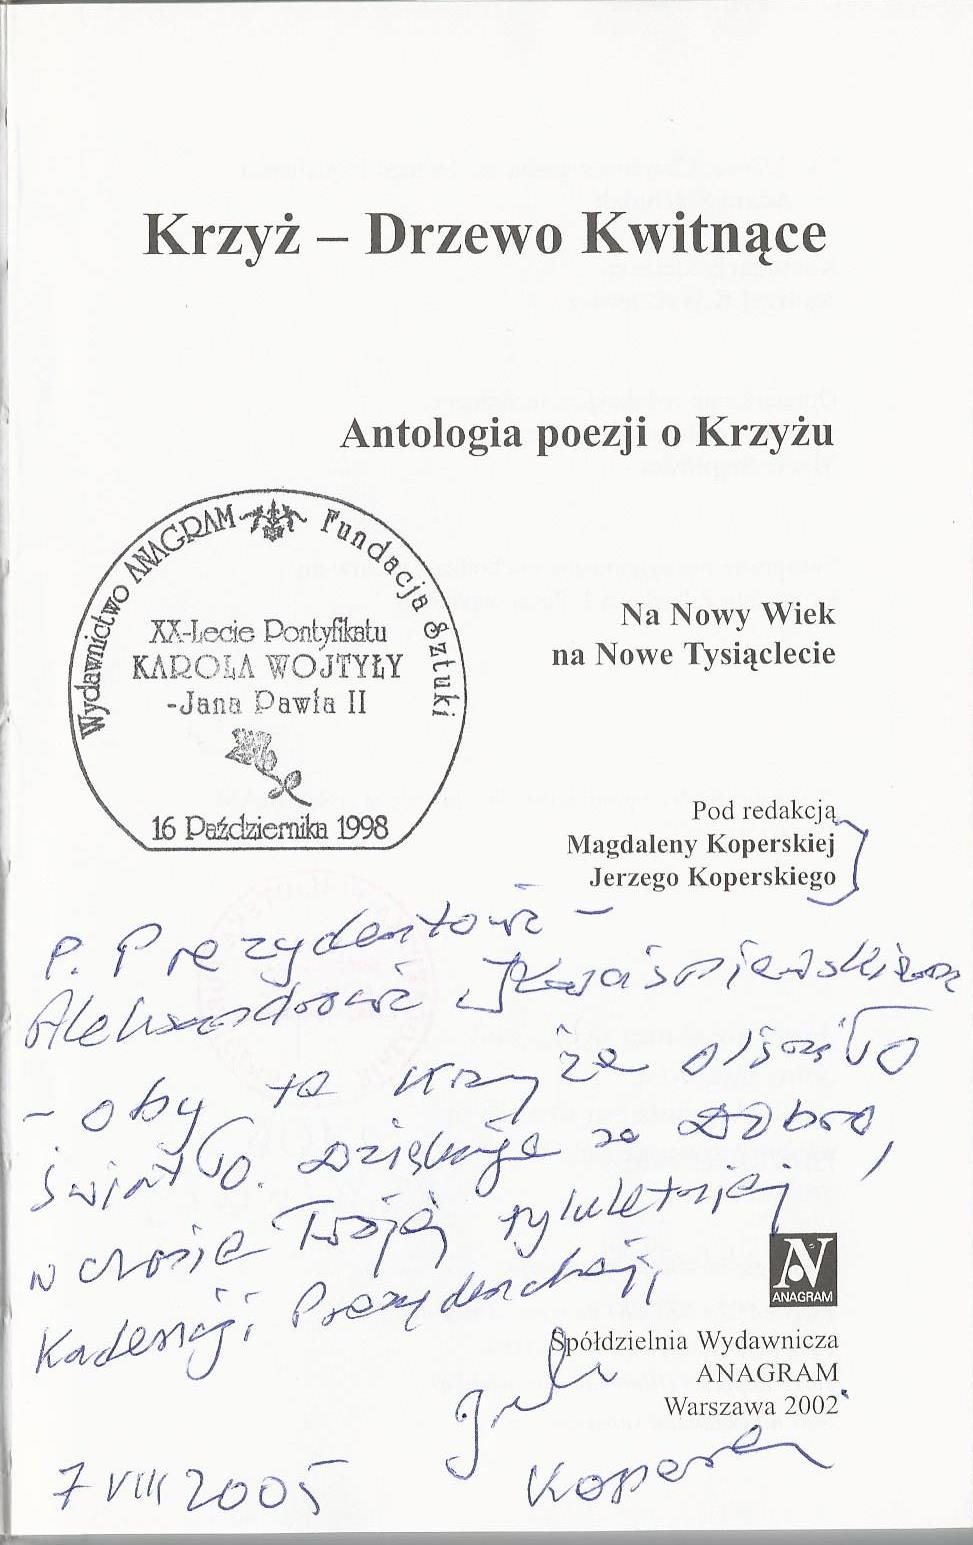 Krzyż – Drzewo Kwitnące
Antologia poezji o Krzyżu
Wydawnictwo ANAGRAM Fundacja Sztuki
XX-Lecie Pontyfikatu
KAROLA WOJTYŁY
-Jana Pawła II
16 Października 1998
Na Nowy Wiek
na Nowe Tysiąclecie
Pod redakcją
Magdaleny Koperskiej
Jerzego Koperskiego
P. Prezydentowi –
Aleksandrowi Kwaśniewskiemu
– oby te Krzyże
świat. Dziękuję za Dobro,
w czasie Twojej
Kadencji Prezydenckiej,
N
ANAGRAM
Spółdzielnia Wydawnicza
ANAGRAM
Warszawa 2002
Koperski
7 VIII 2005